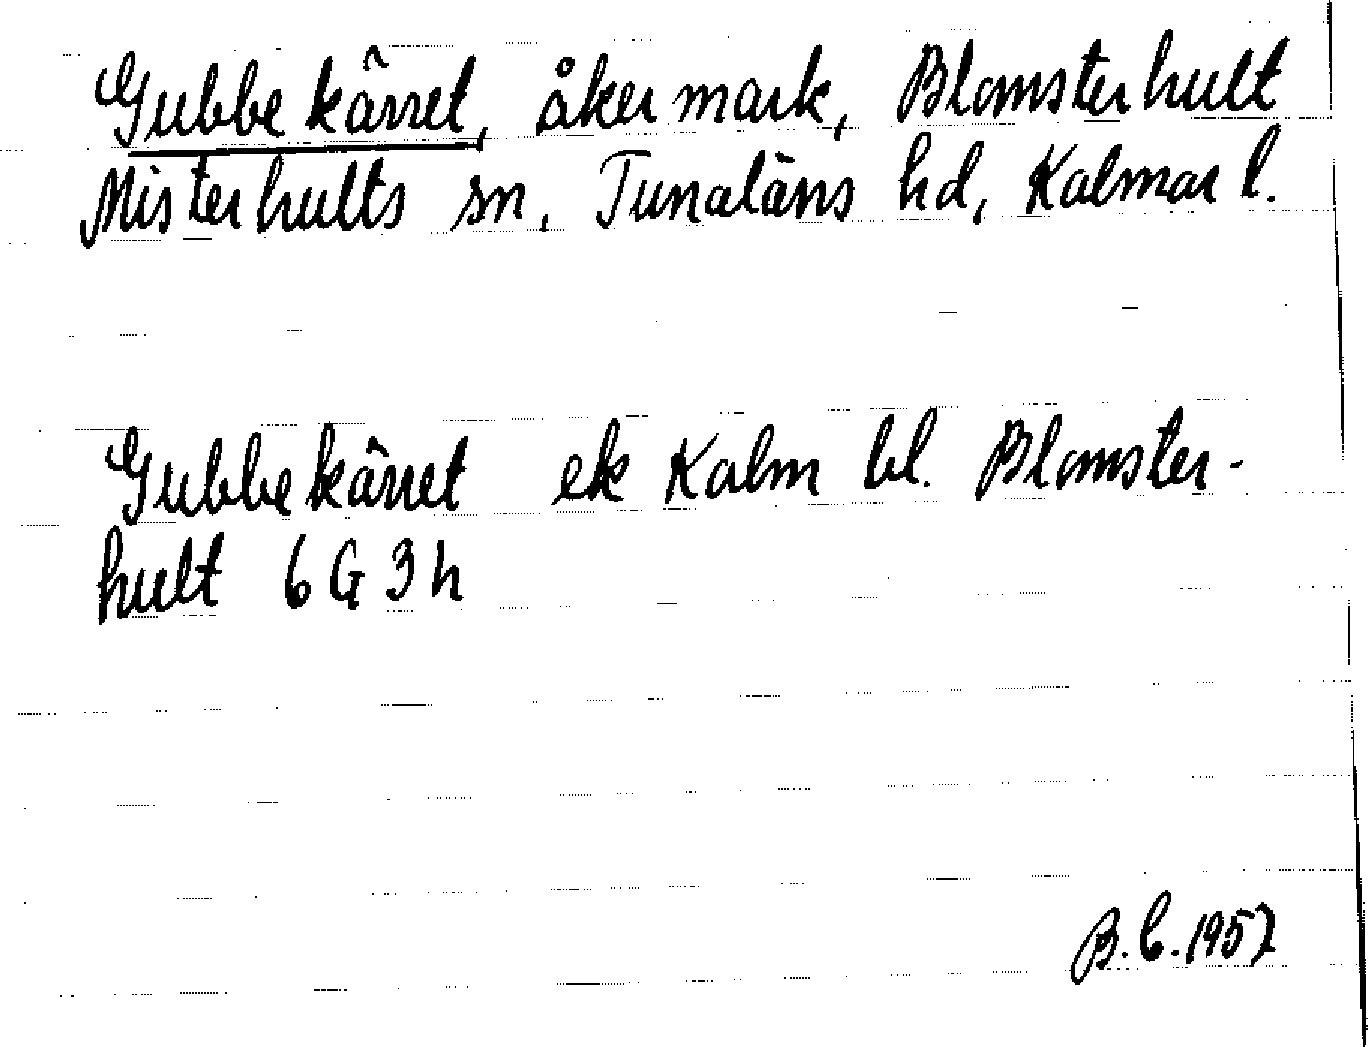 Gubbekärret, åkermark, Blomsterhult
Misterhults sn, Tunaläns hd, Kalmar l.
Gubbekärret ek Kalm bl. Blomster-
hult 6 G 3 h
B.C. 1957